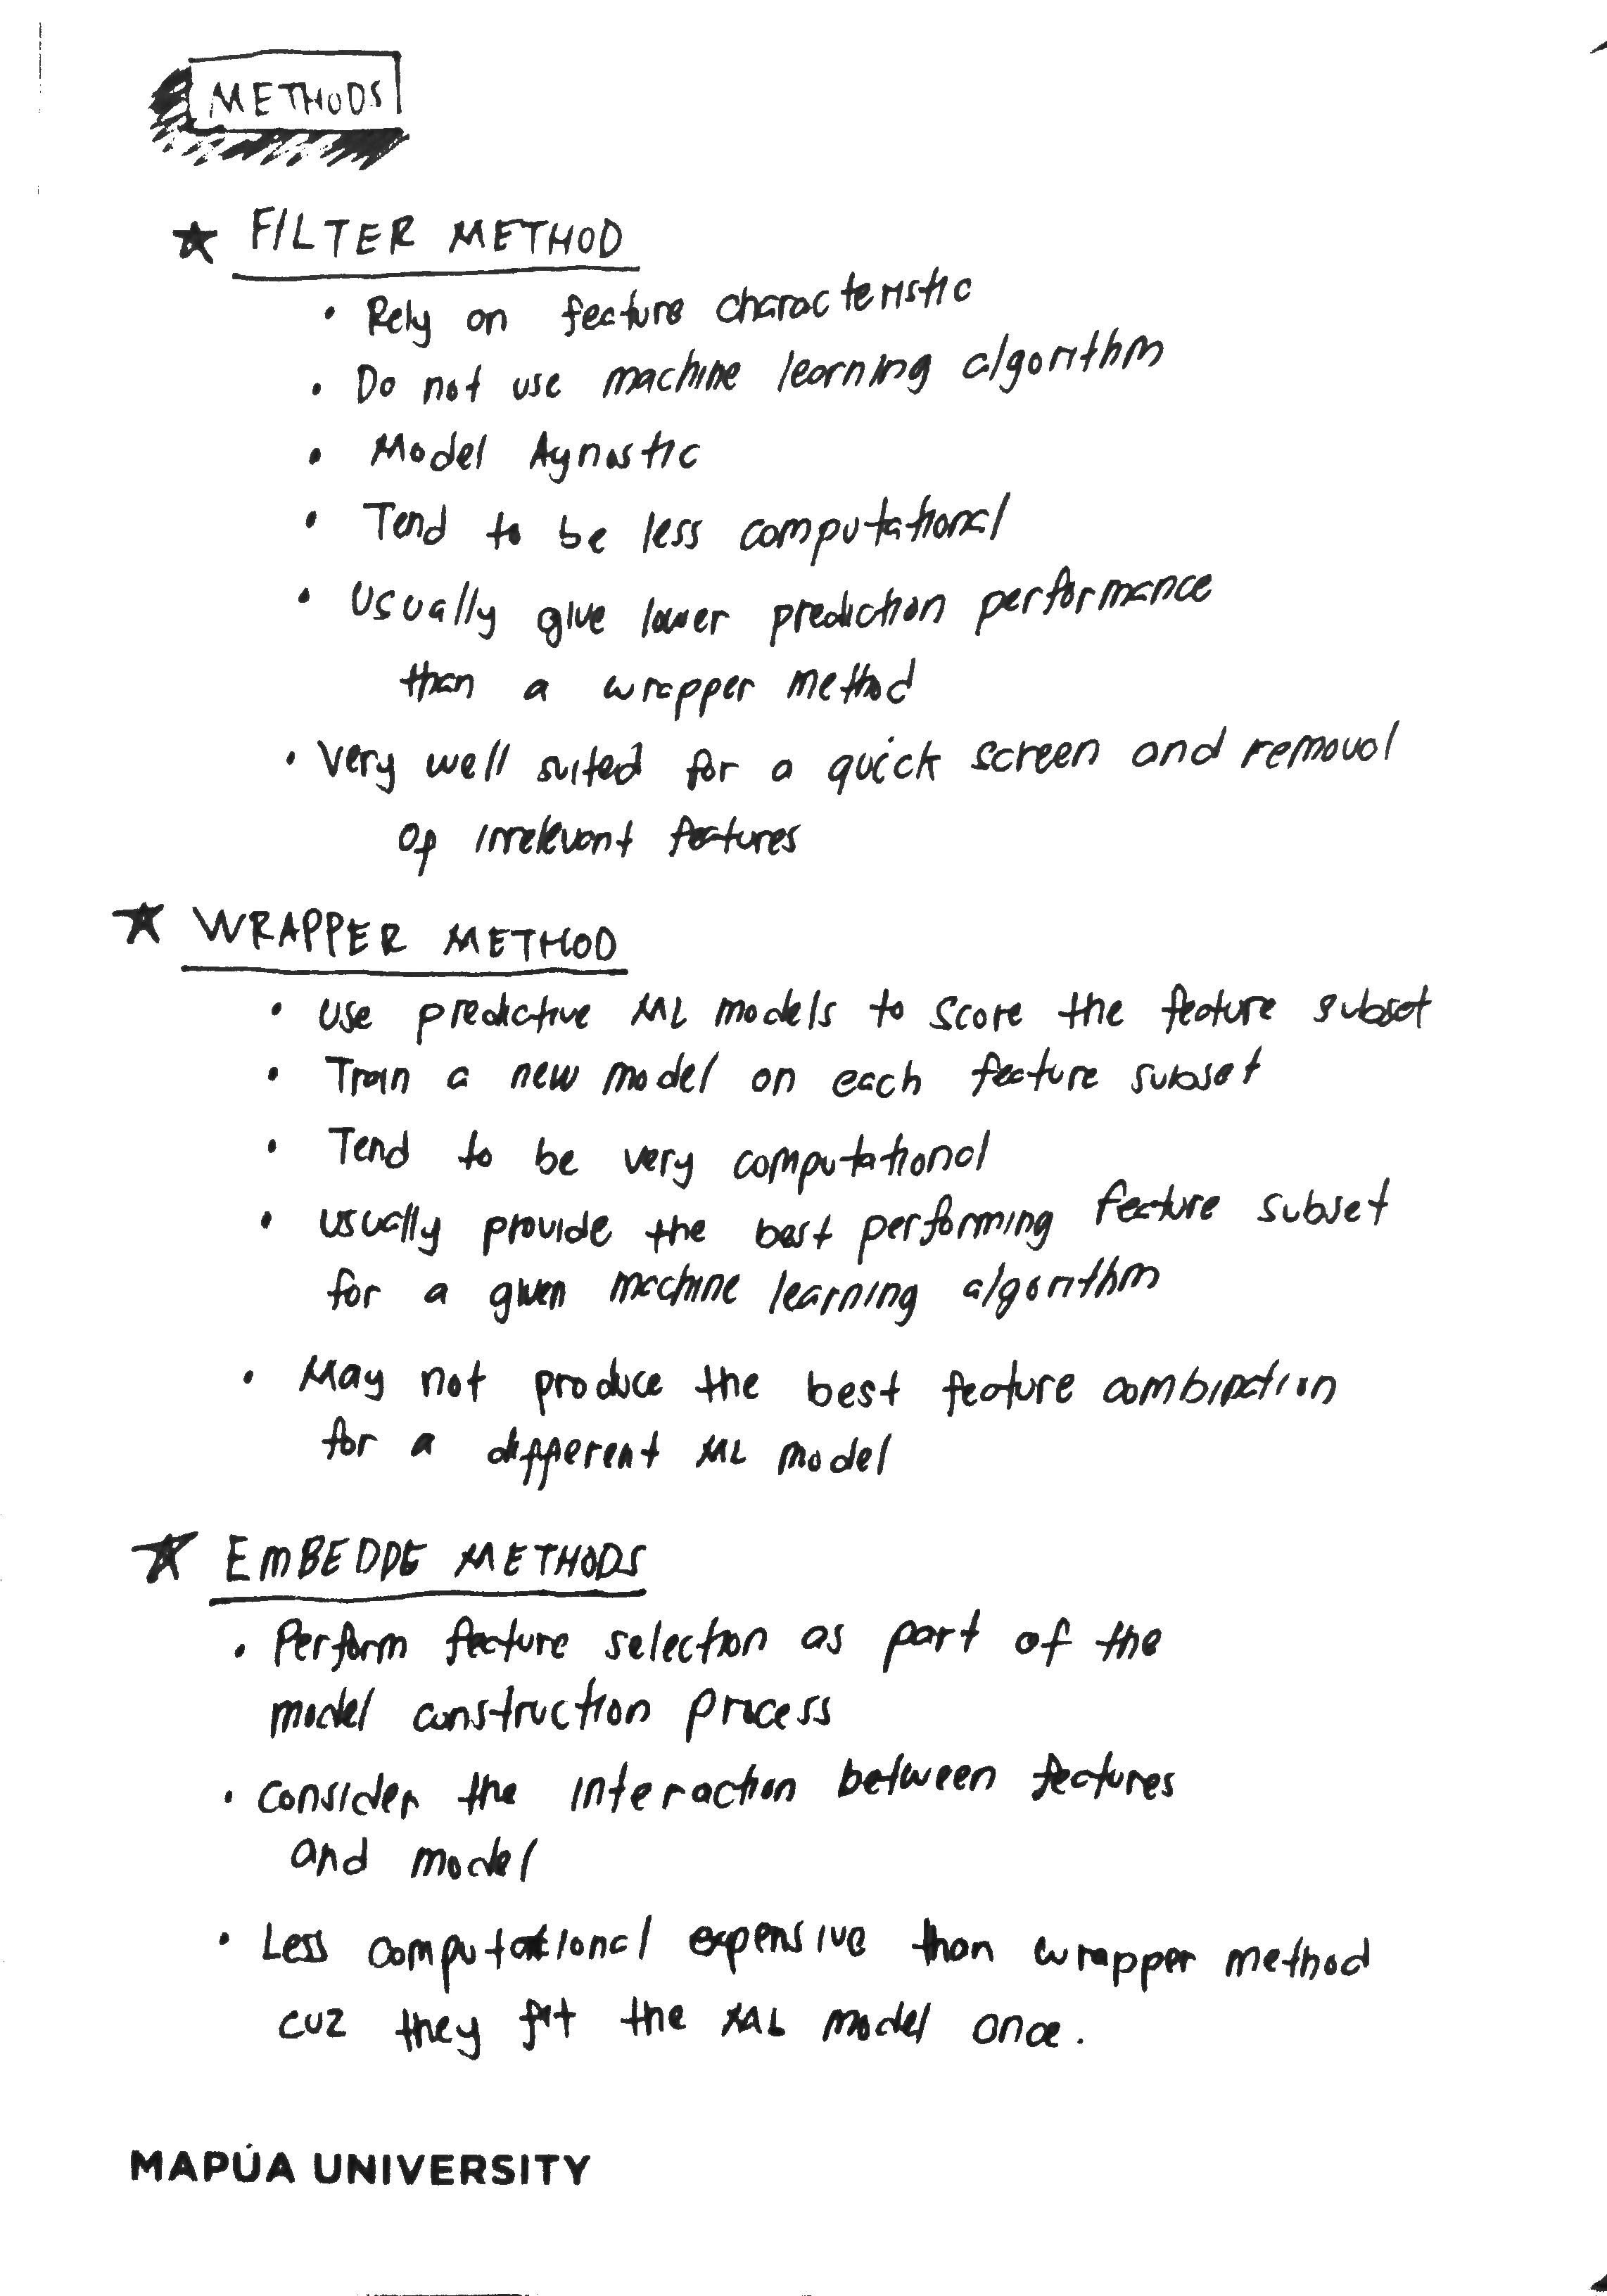 METHODS
★ FILTER METHOD
• Rely on feature characteristic
• Do not use machine learning algorithm
• Model Agnostic
• Tend to be less computational
• Usually give lower prediction performance
than a wrapper method
• Very well suited for a quick screen and removal
of irrelevant features
★ WRAPPER METHOD
• Use predictive ML models to score the feature subset
• Train a new model on each feature subset
• Tend to be very computational
• usually provide the best performing feature subset
for a given machine learning algorithm
• May not produce the best feature combination
for a different ML model
★ EMBEDDE METHODS
• Perform feature selection as part of the
model construction process
• consider the interaction between features
and model
• Less computational expensive than wrapper method
cuz they fit the ML model once.
MAPÚA UNIVERSITY